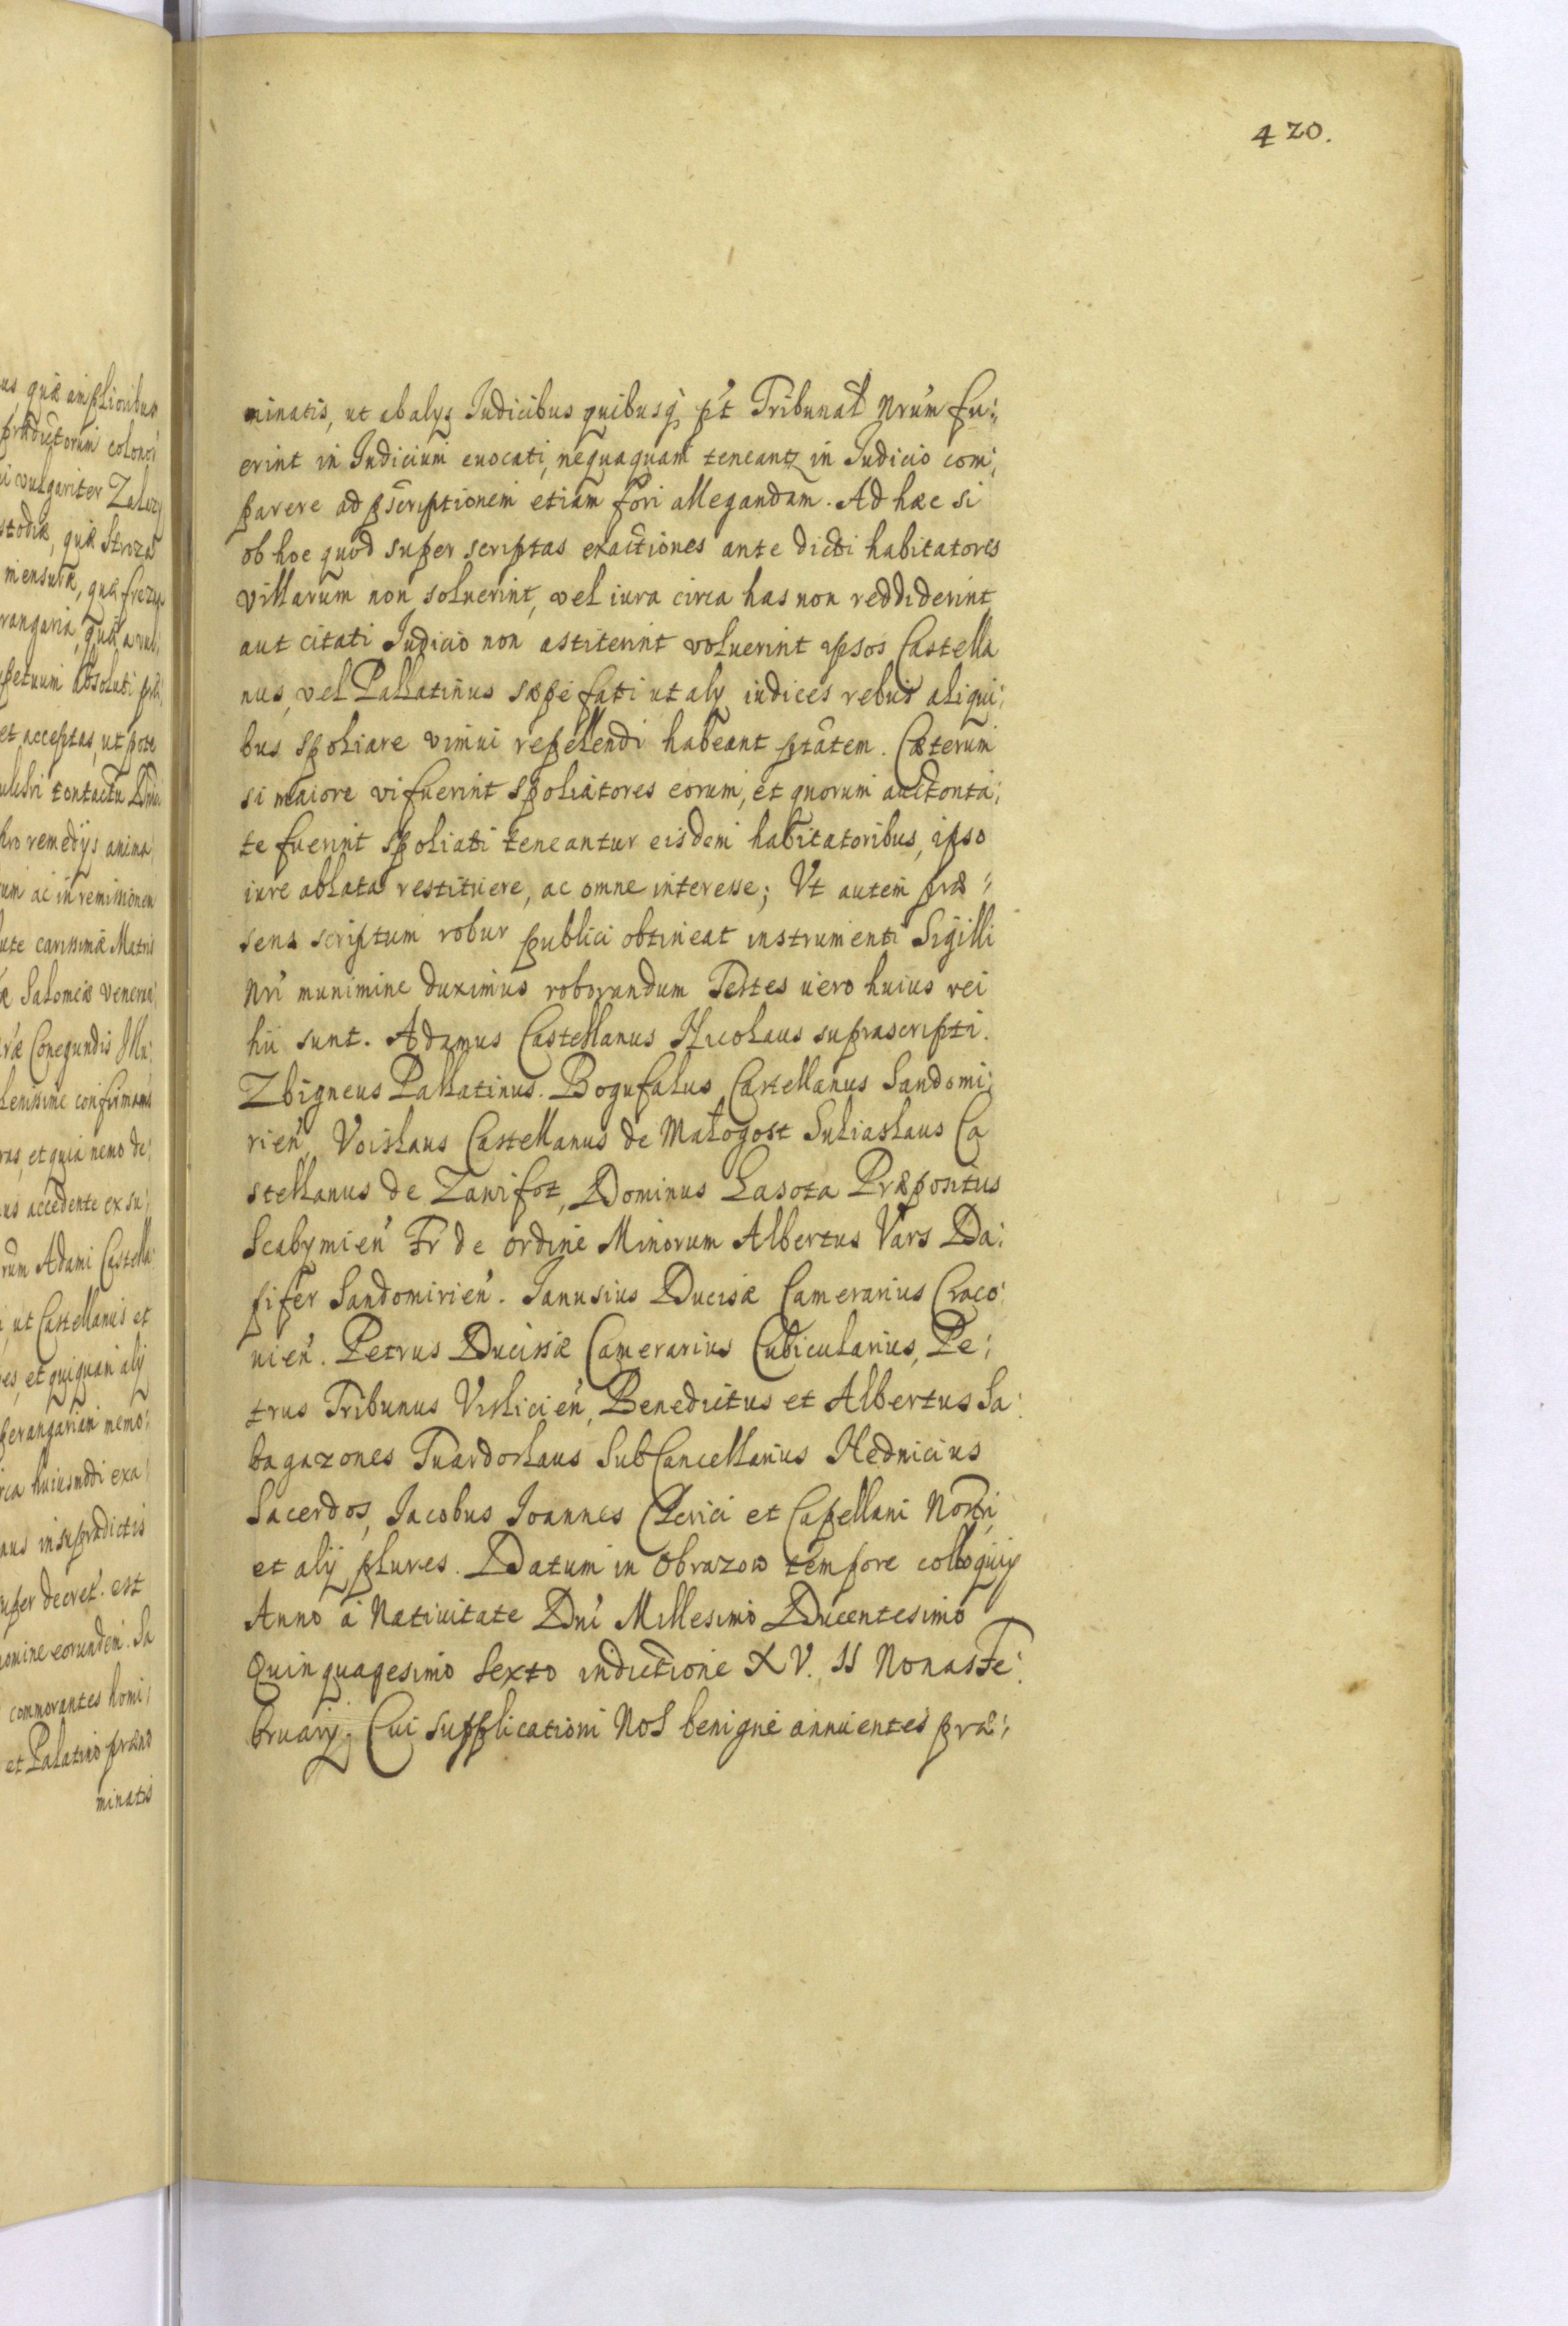 420.
minatis, ut ab alys Iudicibus quibusq; p't Tribunal Nrum fu:
erint in Iudicium euocati, nequaquam teneantz in Iudicio com:
parere ad pscriptionem etiam fori allegandam. Ad hæc si
ob hoc quod super scriptas exactiones ante dicti habitatores
villarum non soluerint, vel iura circa has non reddiderint
aut citati Iudicio non astiterint voluerint ipsos Castella
nus, vel Pallatinus sæpe fati ut aly iudices rebus aliqui:
bus spoliare vim ui repellendi habeant ptatem. Cæterum
si maiore vi fuerint spoliatores eorum, et quorum auctorita:
te fuerint spoliati teneantur eisdem habitatoribus, ipso
iure ablata restituere, ac omne interesse; Vt autem præ:
sens scriptum robur publici obtineat instrumenti Sigilli
Nri munimine duximus roborandum Testes uero huius rei
hii sunt. Adamus Castellanus Nicolaus suprascripti.
Zbigneus Pallatinus. Bogufalus Castellanus Sandomi:
rien, Voislaus Castellanus de Małogost Suliaslaus Ca
stellanus de Zawifot, Dominus Lasota Præpositus
Scabymien Fr de ordine Minorum Albertus Vars Da:
pifer Sandomirien. Ianusius Ducisæ Camerarius Craco:
uien. Petrus Ducissæ Camerarius Cubicularius, Pe:
trus Tribunus Vislicien, Benedictus et Albertus Sa:
bagazones Tuardoslaus SubCancellarius Hednicius
Sacerdos, Iacobus Ioannes Clerici et Capellani Nostri,
et alij plures. Datum in Obrazow tempore colloquiy
Anno à Natiuitate Dni Millesimo Ducentesimo
Quinquagesimo Sexto indictione XV. II Nonas Fe:
bruary. Cui supplicationi Nos benigne annuentes præ:
us quæ amplioribus
prædictorum
vulgariter
stodiæ, quæ Stroza
mensuræ, quæ
et acceptas, ut pote
pro remedijs anima
um ac in remissionem
carissimæ Matris
Salomeæ veneran:
Conegundis
confirmamus
ras, et quia nemo de:
us accedente ex su:
rum Adami Castella:
ut Castellanus et
es, et quiquam alij
perangariam nemo:
ca huiusmodi exa:
aus in supradictis
super decret. est
nomine eorundem. Sa
commorantes homi:
et Palatino præno
minatis